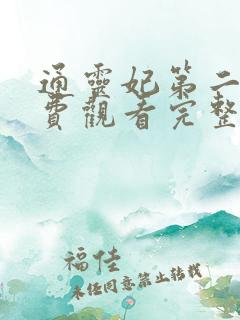 通靈妃第二
費觀看完整
福佳
未经同意禁止转载